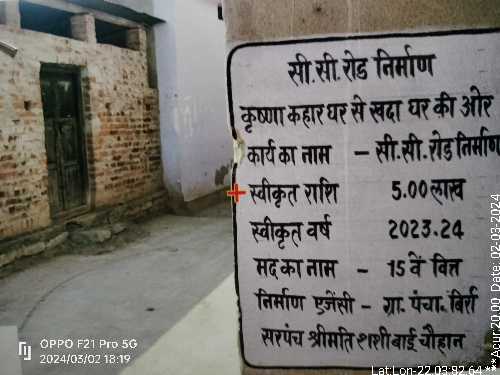 सी.सी. रोड निर्माण
कृष्णा कहार घर से खदा घर की ओर
कार्य का नाम - सी.सी. रोड निर्माण
स्वीकृत राशि 5.00 लाख
स्वीकृत वर्ष 2023.24
मद का नाम - 15 वें वित्त
निर्माण एजेंसी - ग्रा. पंचा. बिर्रा
सरपंच श्रीमति शशीबाई चौहान
OPPO F21 Pro 5G
2024/03/02 18:19
Lat Lon-22.03,82.64 ***
Acur:20.00, Date: 02-03-2024